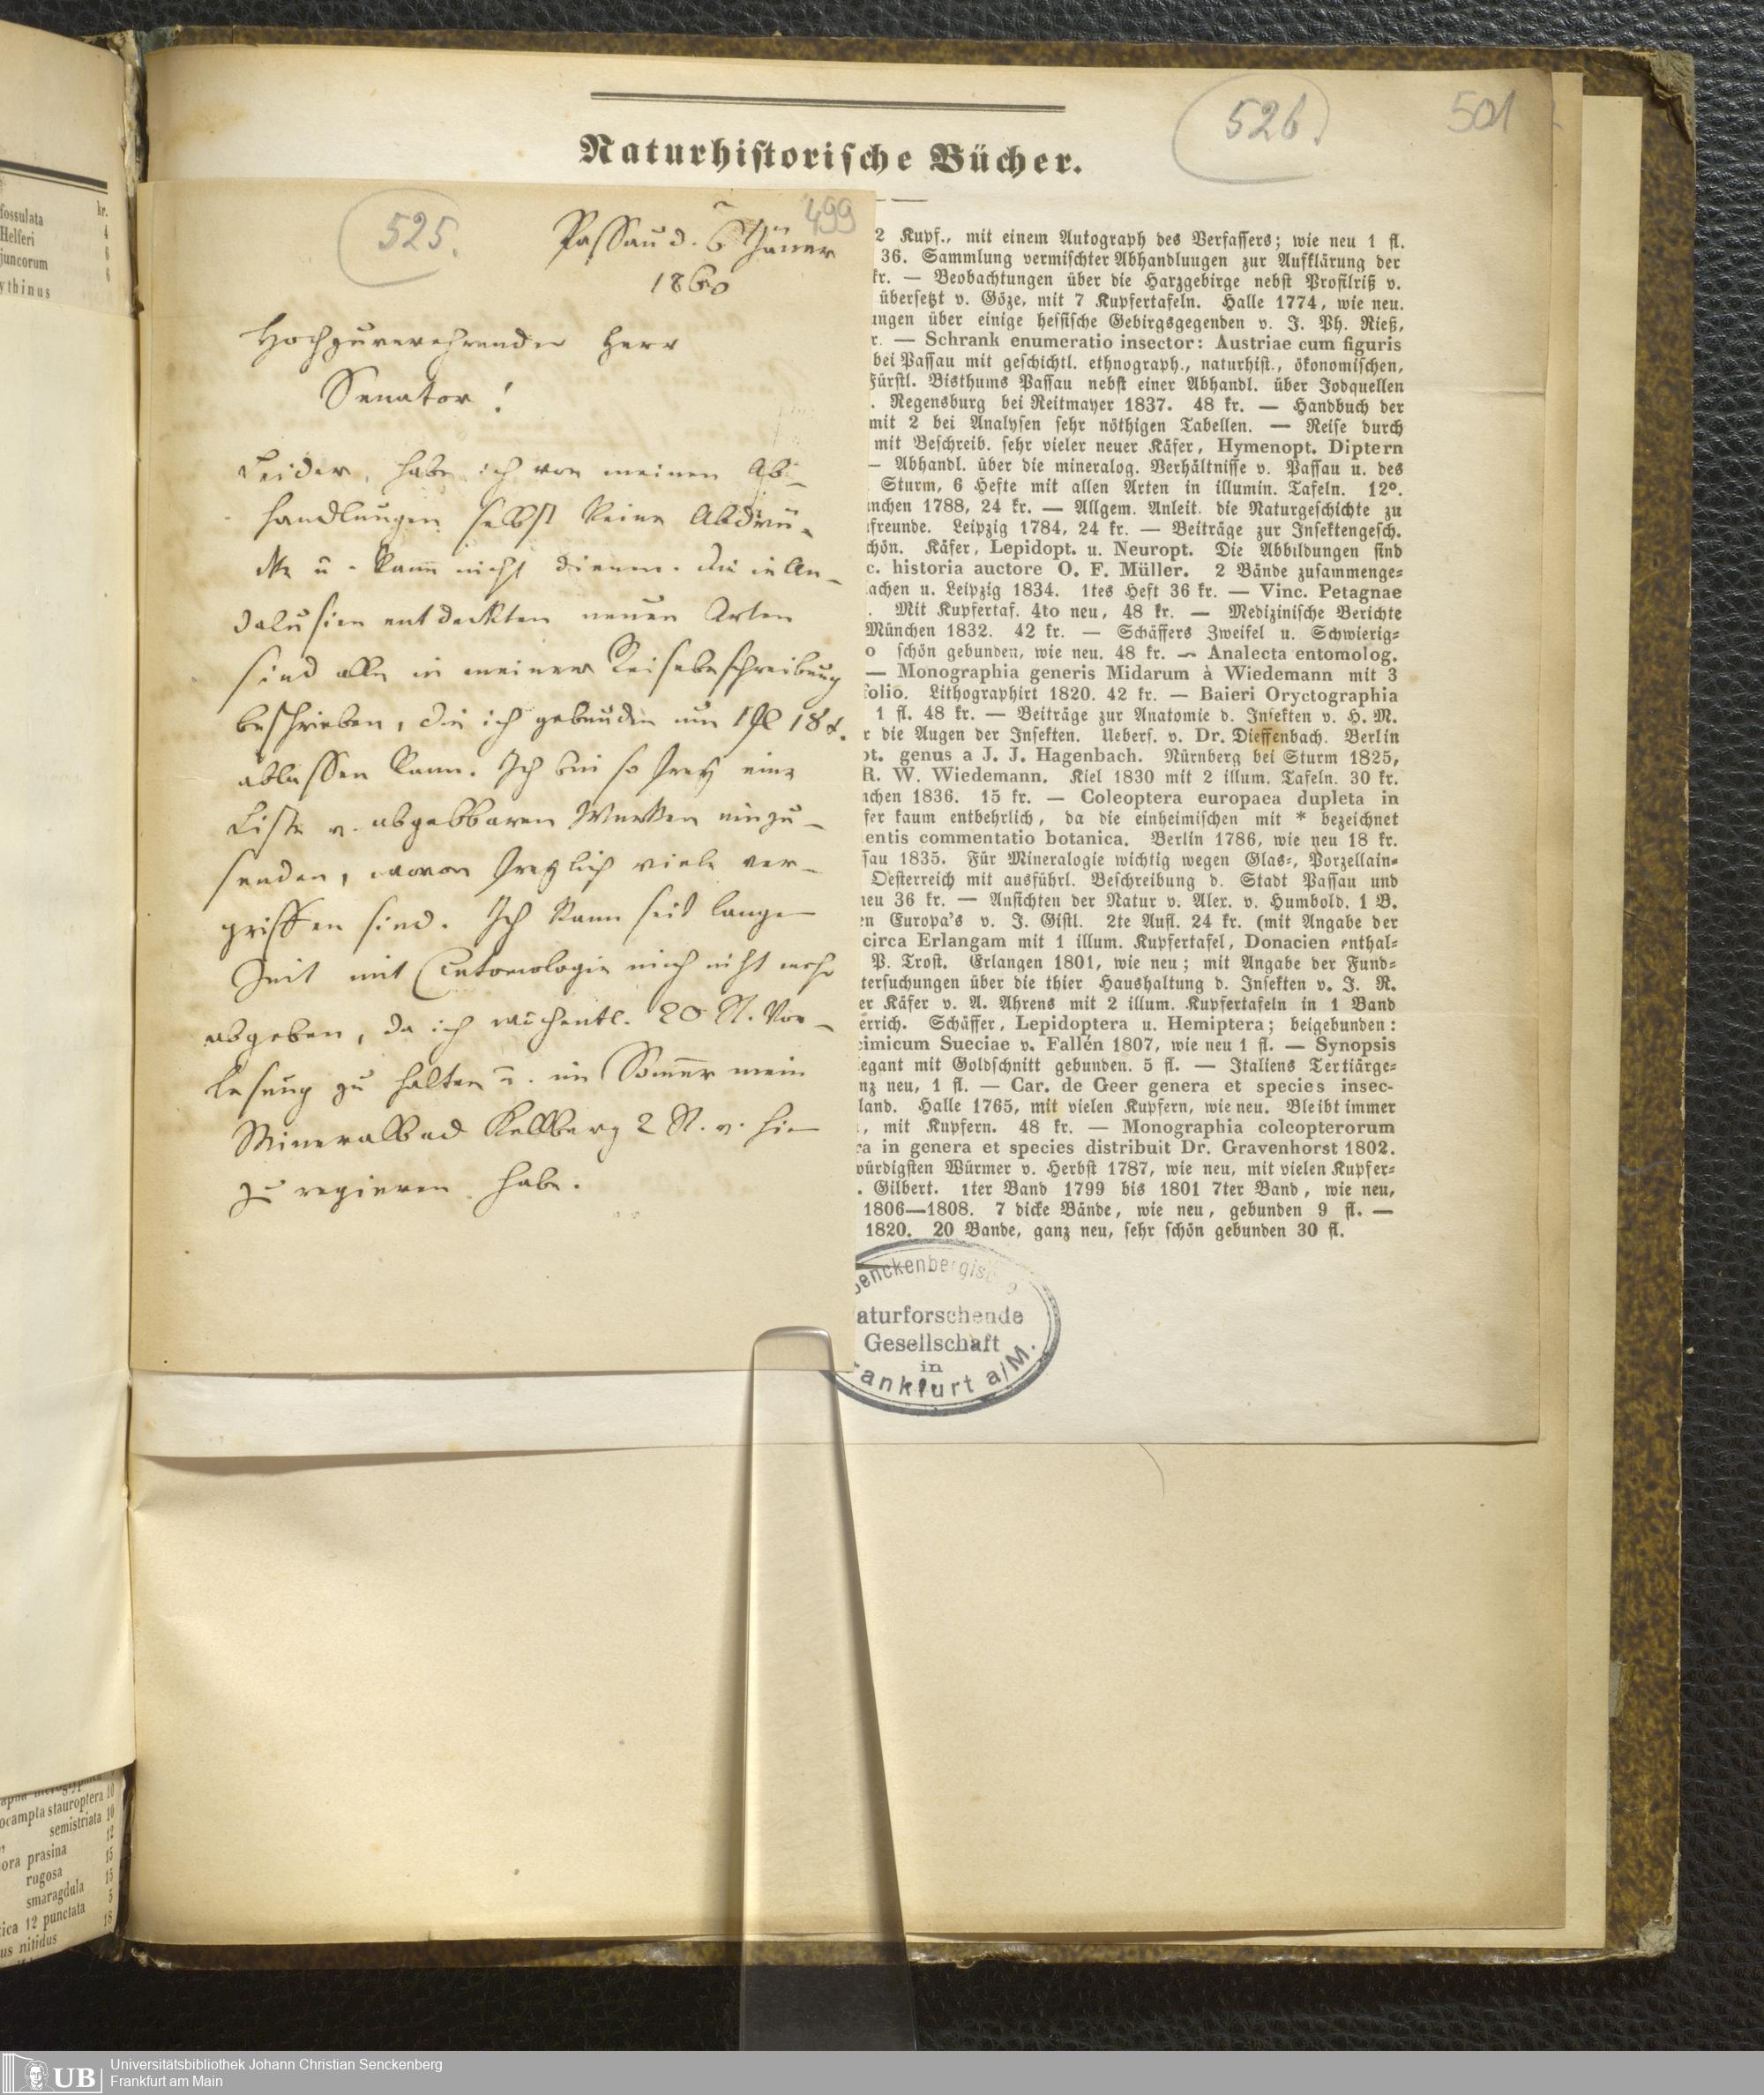 526.
501
Naturhistorische Bücher.
525.
499
Passau d. 6 Jäner
1860
Hochzuverehrender Herr
Senator!
Leider, habe ich von meinen Ab-
handlungen selbst keine Abdrü-
cke u. kann nicht dienen. Die in An-
dalusien entdeckten neuen Arten
sind alle in meiner Reisebeschreibung
beschrieben, die ich gebunden um 1 fl 18 x.
ablassen kann. Ich bin so frey eine
Liste v. abgebbaren Werken einzu-
senden, wovon freylich viele ver-
griffen sind. Ich kann seit lange
Zeit mit Entomologie mich nicht mehr
abgeben, da ich wöchentl. 20 St. Vor-
lesung zu halten u. im Sommer mein
Mineralbad Kellberg 2 St. v. hier
zu regieren habe.
2 Kupf., mit einem Autograph des Verfassers; wie neu 1 fl.
36. Sammlung vermischter Abhandluugen zur Aufklärung der
kr. — Beobachtungen über die Harzgebirge nebst Profilriß v.
übersetzt v. Göze, mit 7 Kupfertafeln. Halle 1774, wie neu.
ungen über einige hessische Gebirgsgegenden v. J. Ph. Rieß,
r. — Schrank enumeratio insector: Austriae cum figuris
bei Passau mit geschichtl. ethnograph., naturhist., ökonomischen,
Fürstl. Bisthums Passau nebst einer Abhandl. über Jodquellen
. Regensburg bei Reitmayer 1837. 48 kr. — Handbuch der
mit 2 bei Analysen sehr nöthigen Tabellen. — Reise durch
mit Beschreib. sehr vieler neuer Käfer, Hymenopt. Diptern
— Abhandl. über die mineralog. Verhältnisse v. Passau u. des
Sturm, 6 Hefte mit allen Arten in illumin. Tafeln. 12°.
nchen 1788, 24 kr. — Allgem. Anleit. die Naturgeschichte zu
freunde. Leipzig 1784, 24 kr. — Beiträge zur Insektengesch.
chön. Käfer, Lepidopt. u. Neuropt. Die Abbildungen sind
c. historia auctore O. F. Müller. 2 Bände zusammenge-
achen u. Leipzig 1834. 1tes Heft 36 kr. — Vinc. Petagnae
. Mit Kupfertaf. 4to neu, 48 kr. — Medizinische Berichte
München 1832. 42 kr. — Schäffers Zweifel u. Schwierig-
o schön gebunden, wie neu. 48 kr. — Analecta entomolog.
— Monographia generis Midarum à Wiedemann mit 3
folio. Lithographirt 1820. 42 kr. — Baieri Oryctographia
1 fl. 48 kr. — Beiträge zur Anatomie d. Insekten v. H. M.
r die Augen der Insekten. Uebers. v. Dr. Dieffenbach. Berlin
pt. genus a J. J. Hagenbach. Nürnberg bei Sturm 1825,
R. W. Wiedemann. Kiel 1830 mit 2 illum. Tafeln. 30 kr.
nchen 1836. 15 kr. — Coleoptera europaea dupleta in
fer kaum entbehrlich, da die einheimischen mit * bezeichnet
entis commentatio botanica. Berlin 1786, wie neu 18 kr.
sau 1835. Für Mineralogie wichtig wegen Glas-, Porzellain-
Oesterreich mit ausführl. Beschreibung d. Stadt Passau und
neu 36 kr. — Ansichten der Natur v. Alex. v. Humbold. 1 B.
en Europa's v. J. Gistl. 2te Aufl. 24 kr. (mit Angabe der
circa Erlangam mit 1 illum. Kupfertafel, Donacien enthal-
P. Trost. Erlangen 1801, wie neu; mit Angabe der Fund-
tersuchungen über die thier Haushaltung d. Insekten v. J. R.
er Käfer v. A. Ahrens mit 2 illum. Kupfertafeln in 1 Band
errich. Schäffer, Lepidoptera u. Hemiptera; beigebunden:
cimicum Sueciae v. Fallén 1807, wie neu 1 fl. — Synopsis
legant mit Goldschnitt gebunden. 5 fl. — Italiens Tertiärge-
nz neu, 1 fl. — Car. de Geer genera et species insec-
land. Halle 1765, mit vielen Kupfern, wie neu. Bleibt immer
, mit Kupfern. 48 kr. — Monographia colcopterorum
ra in genera et species distribuit Dr. Gravenhorst 1802.
würdigsten Würmer v. Herbst 1787, wie neu, mit vielen Kupfer-
. Gilbert. 1ter Band 1799 bis 1801 7ter Band, wie neu,
1806—1808. 7 dicke Bände, wie neu, gebunden 9 fl. —
1820. 20 Bande, ganz neu, sehr schön gebunden 30 fl.
Senckenbergische
aturforschende
Gesellschaft
in
rankfurt a/M.
kr.
fossulata 4
Helferi 6
juncorum 6
ythinus
ocampta stauroptera 10
semistriata 10
ora prasina 12
rugosa 15
smaragdula 15
ica 12 punctata 5
us nitidus 18
UB
Universitätsbibliothek Johann Christian Senckenberg
Frankfurt am Main